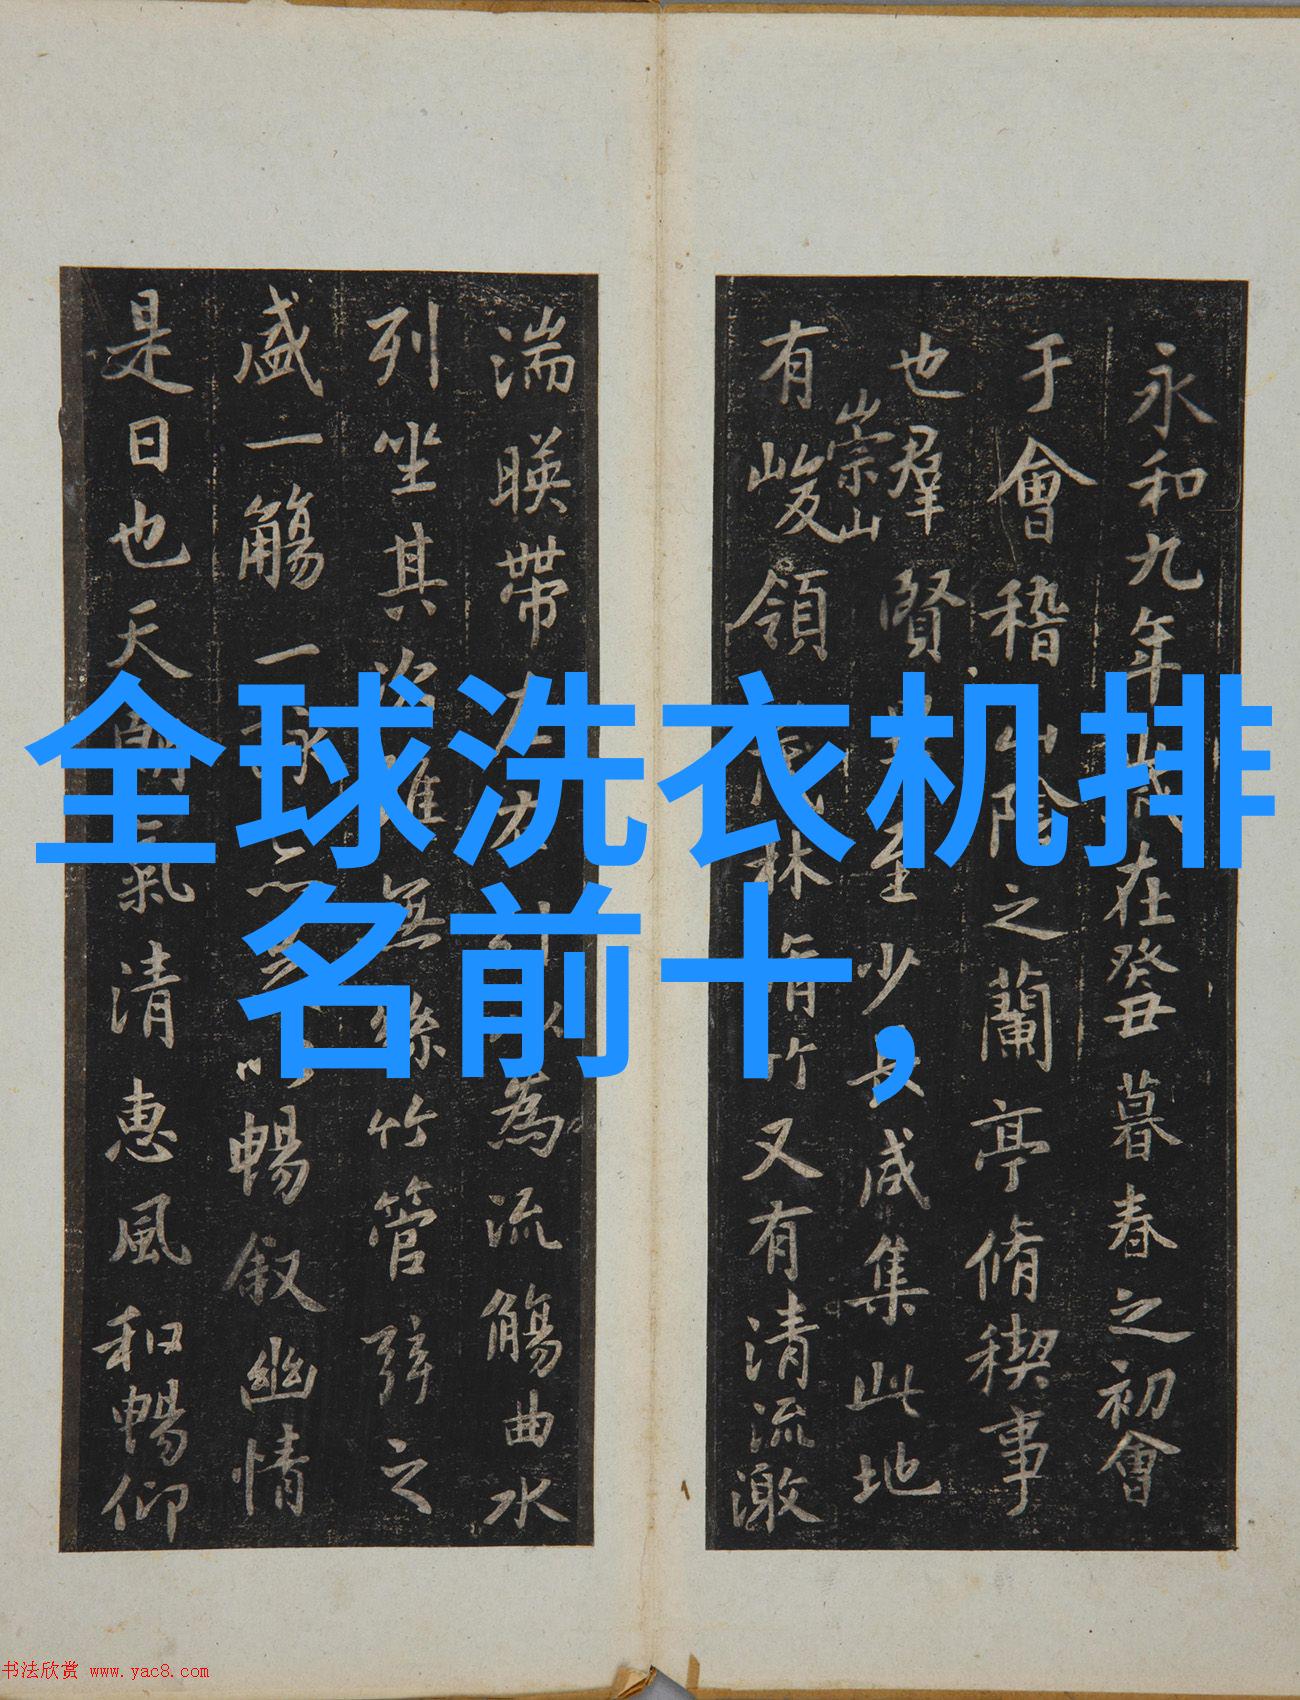 全球洗衣机排
名前十，
永和九年歲在癸丑暮春之初會
于會稽山陰之蘭亭脩稧事
也羣賢畢至少長咸集此地
有崇山峻領茂林脩竹又有清流激
湍暎帶左右引以為流觴曲水
列坐其次雖無絲竹管弦之
盛一觴一詠亦足以暢叙幽情
是日也天朗氣清惠風和暢仰
书法欣赏 www.yac8.com